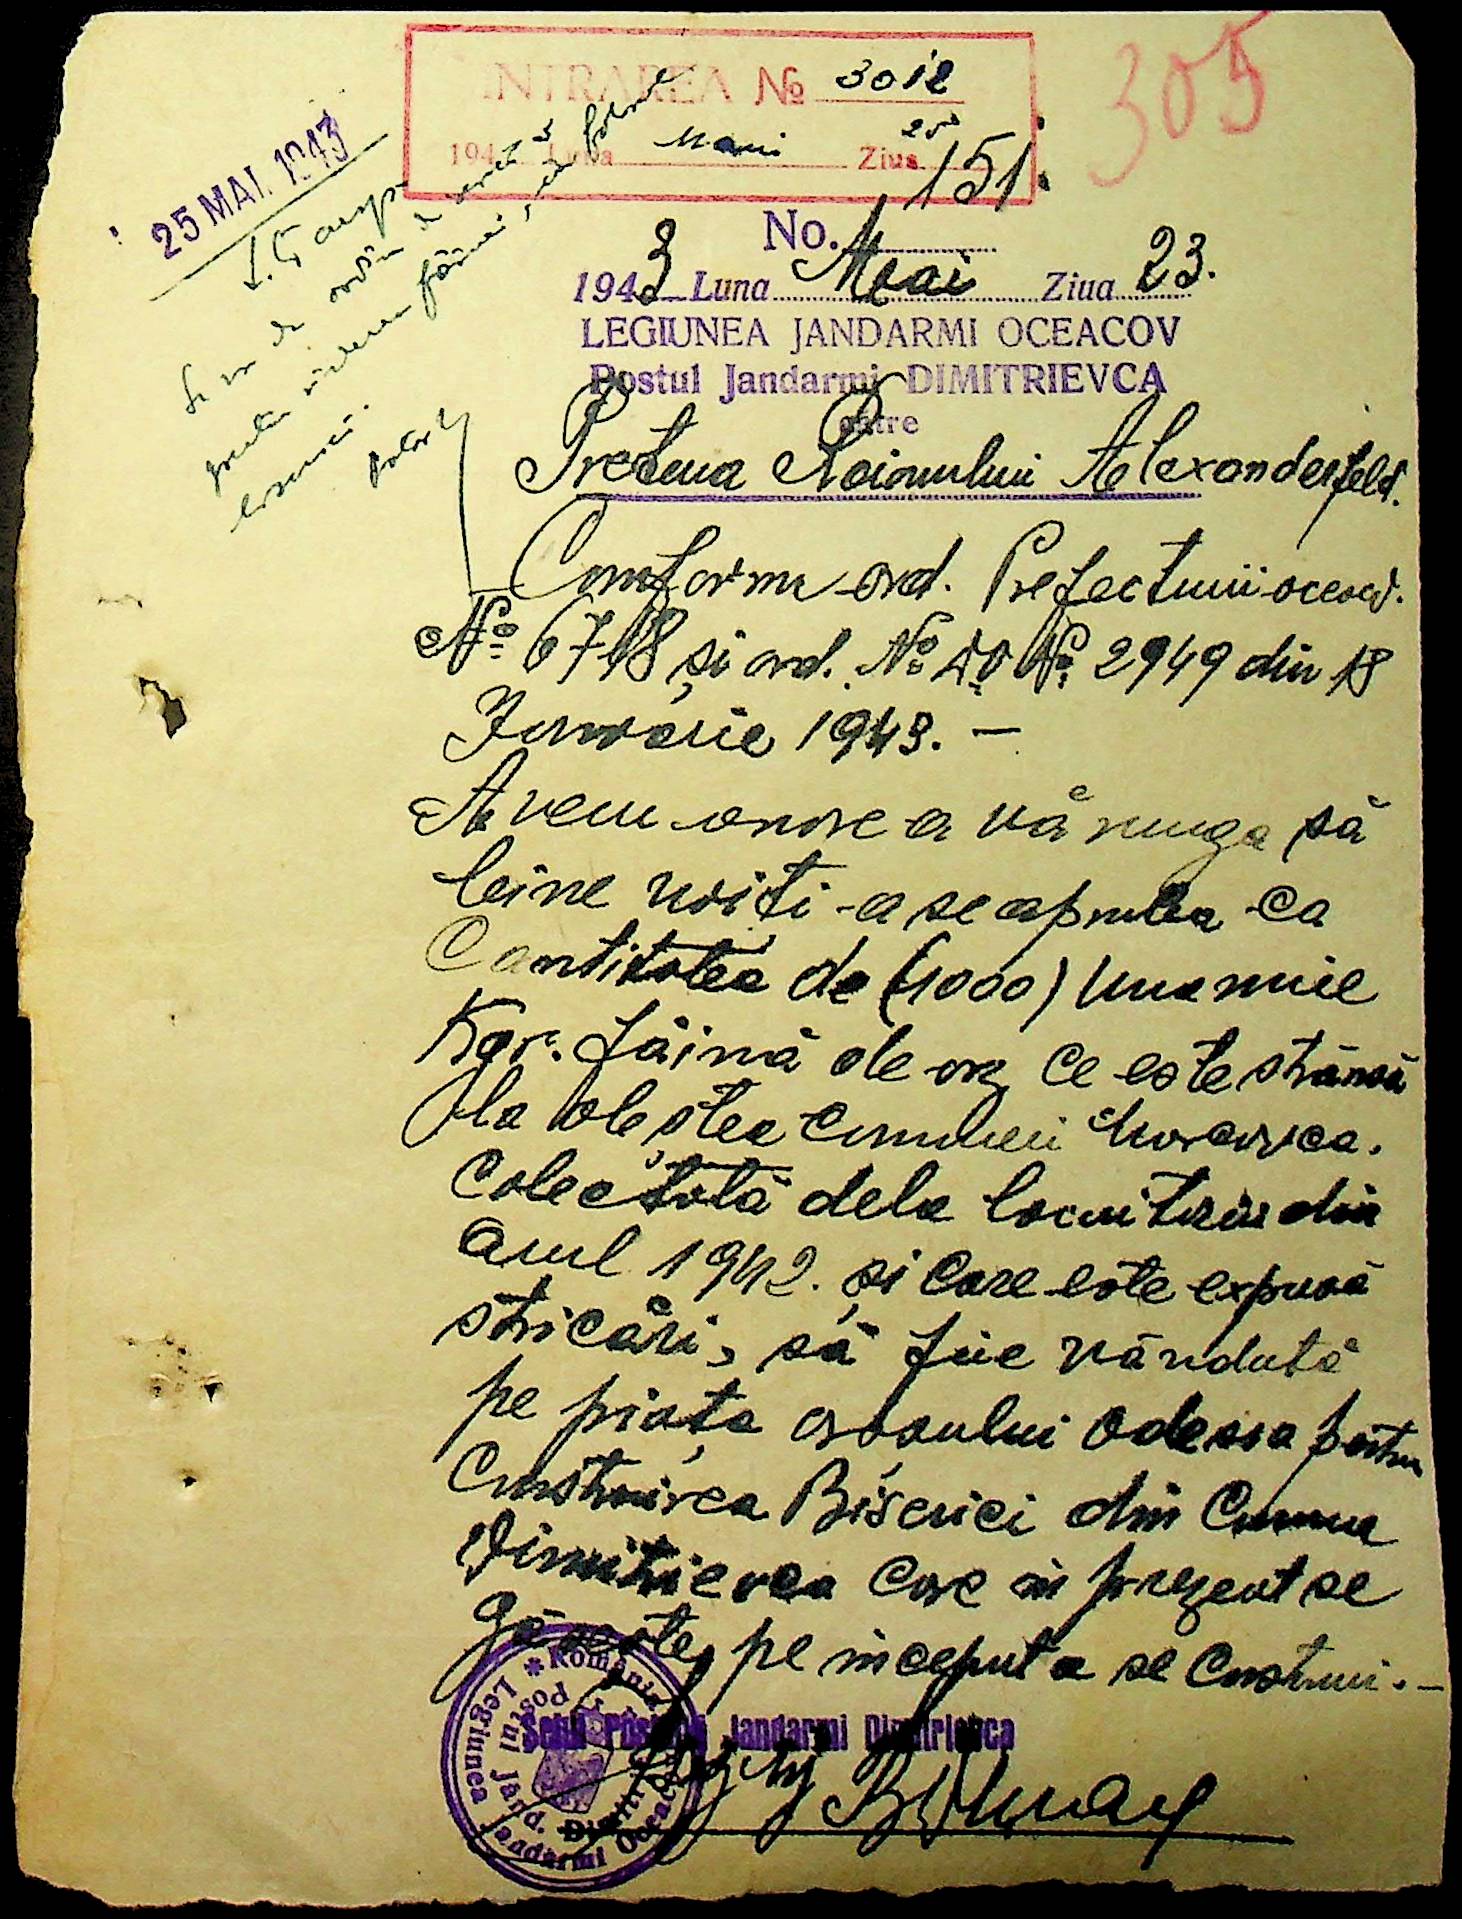 305
INTRAREA № 3012
194 Luna Mai Ziua 25
25 MAI. 1943
151.
No.
1943 Luna Mai Ziua 23.
LEGIUNEA JANDARMI OCEACOV
Postul Jandarmi DIMITRIEVCA
către
Pretura Raionului Alexanderfeld.
Se va da ordin de
făinei
Conform ord. Prefecturii
№ 6718 și ord. № 2949 din 18
Ianuarie 1943. —
Avem onore a vă ruga să
bine voiți a se aproba ca
Cantitatea de (1000) Una mie
Kgr. făină de orz ce este strânsă
la obștea comunei
Colectată dela locuitorii din
anul 1942. și care este expusă
stricări, să fie vândută
pe piața orașului Odessa pentru
Construirea Bisericei din Comuna
Dimitrievca care în prezent se
găsește, pe început a se construi. —
Șeful Postului Jandarmi Dimitrievca
România
Legiunea Jandarmi Oceacov
Postul Jand. Dimitrievca